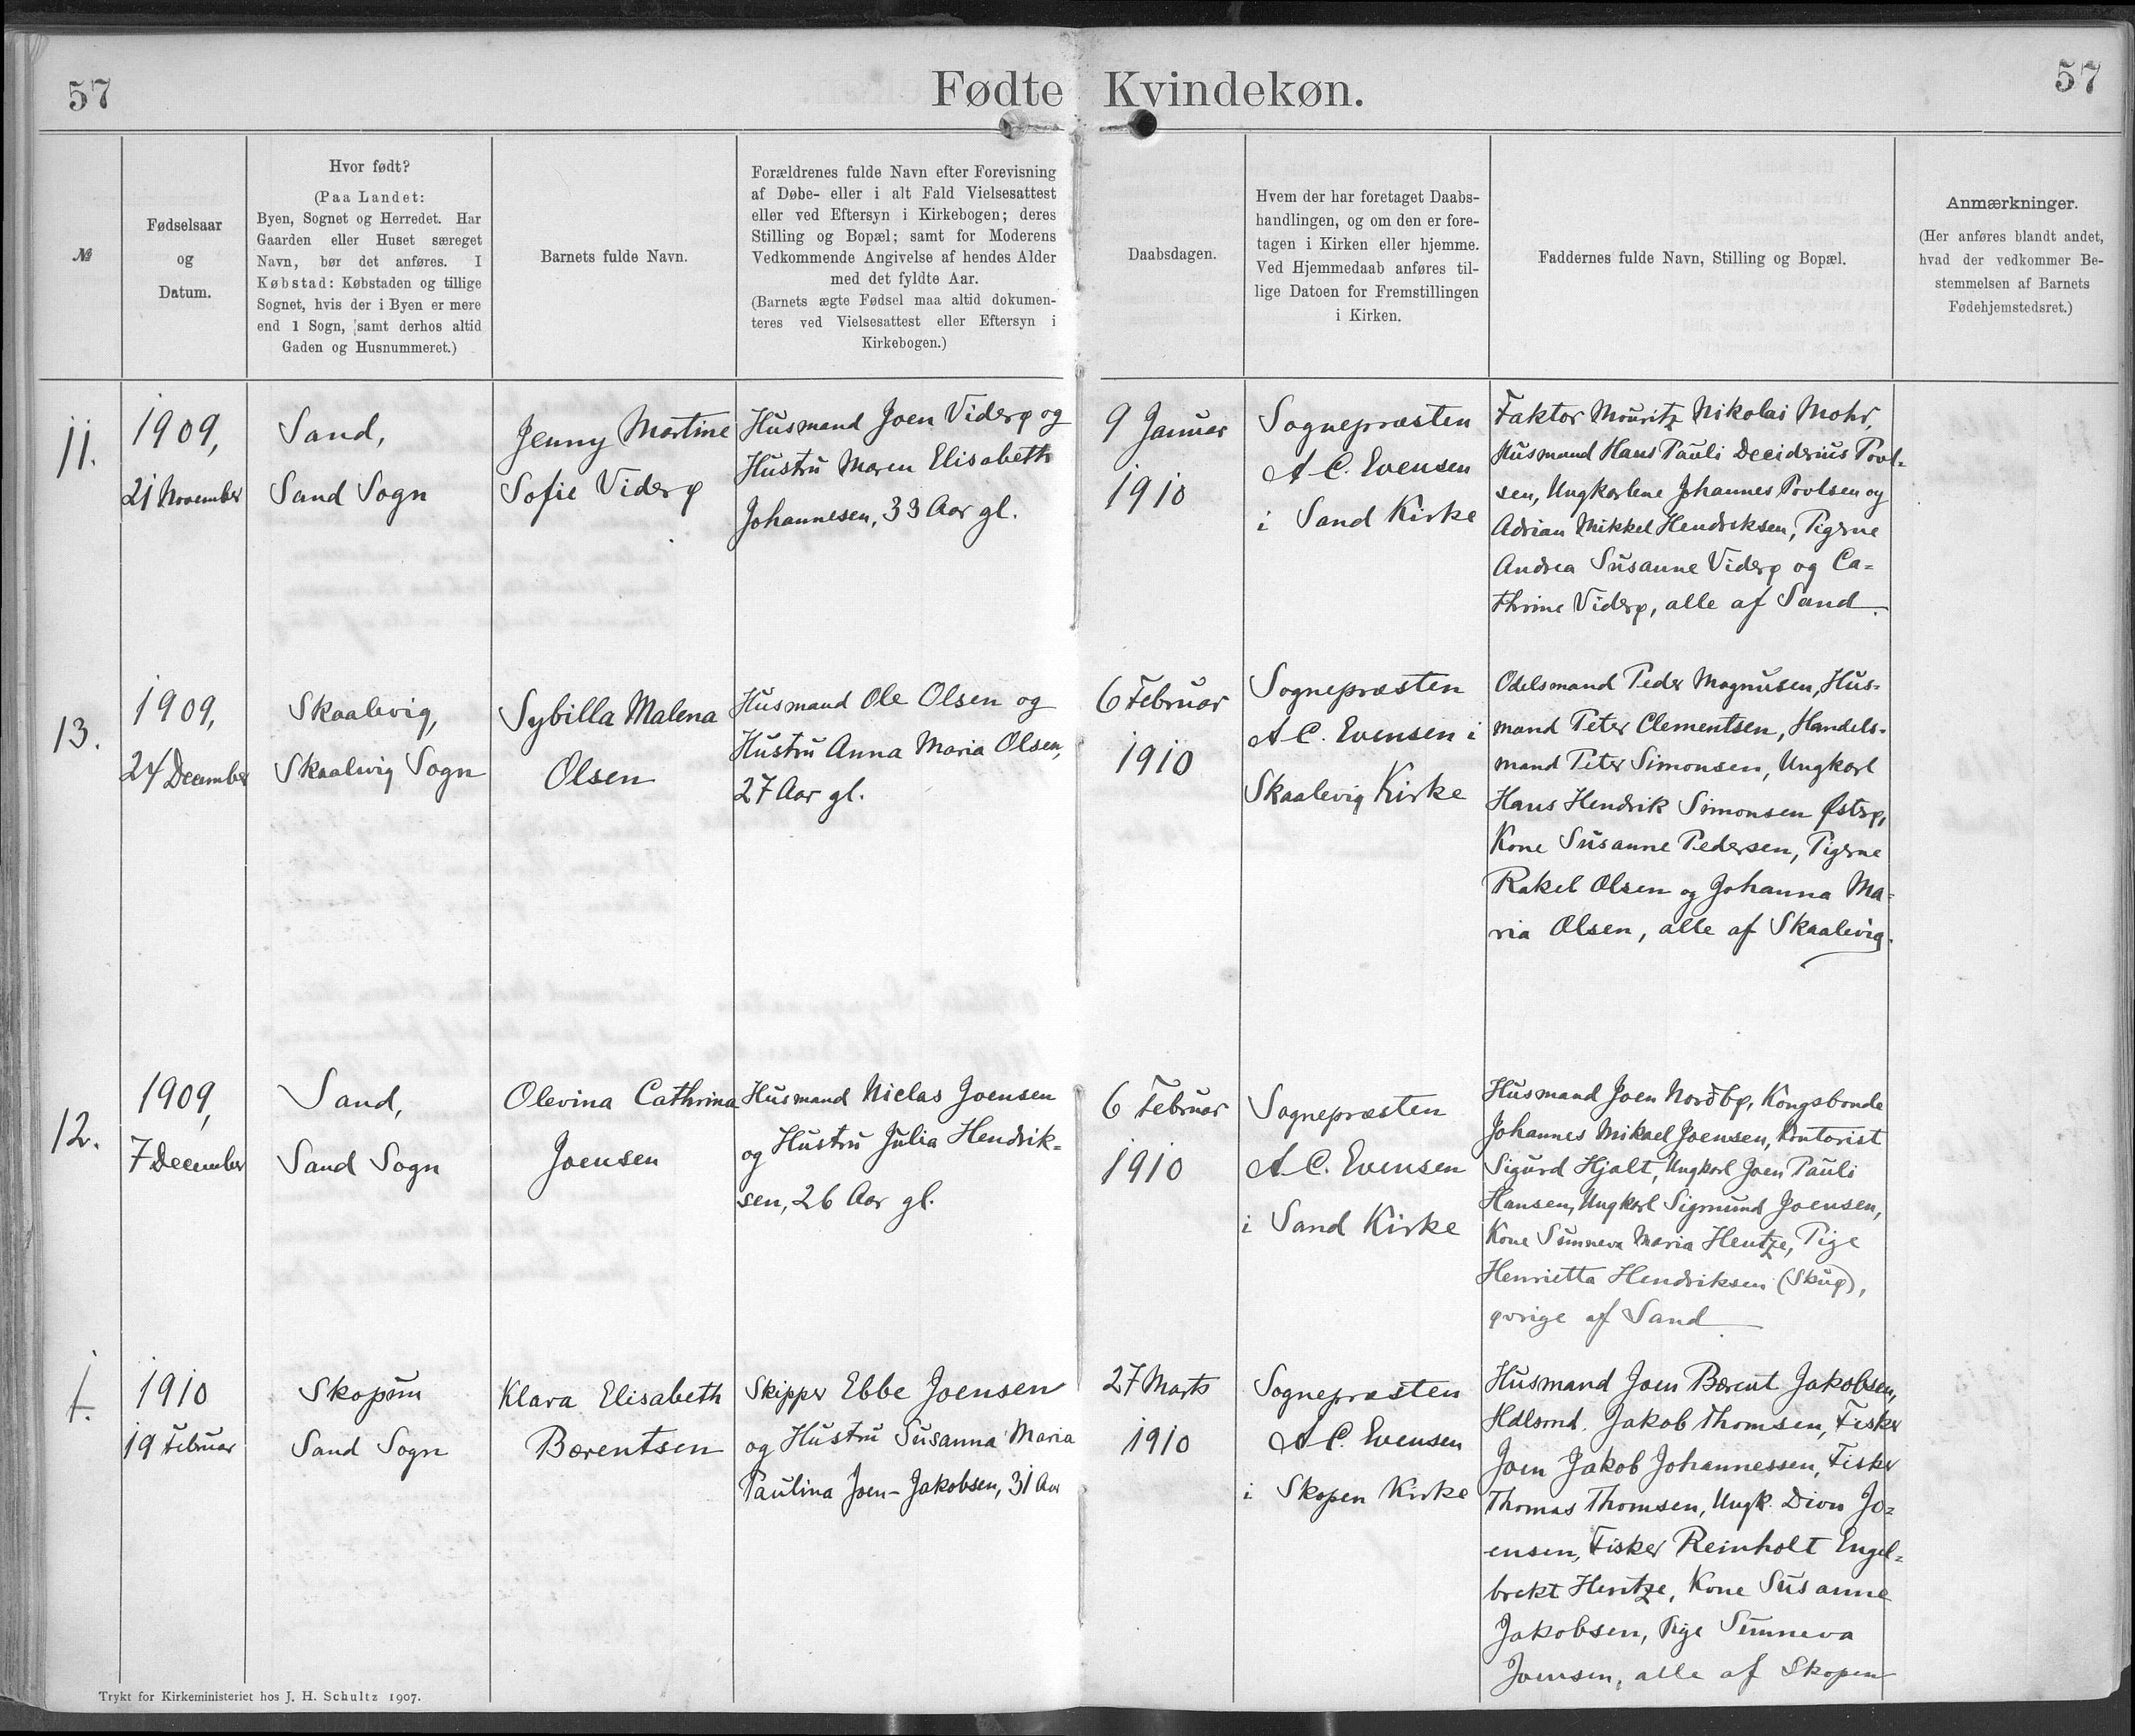 57
Fødte Kvindekøn.
57
№
Fødselsaar
og
Datum.
Hvor født?
(Paa Landet:
Byen, Sognet og Herredet. Har
Gaarden eller Huset særeget
Navn, bør det anføres. I
Købstad: Købstaden og tillige
Sognet, hvis der i Byen er mere
end 1 Sogn, samt derhos altid
Gaden og Husnummeret.)
Barnets fulde Navn.
Forældrenes fulde Navn efter Forevisning
af Døbe- eller i alt Fald Vielsesattest
eller ved Eftersyn i Kirkebogen; deres
Stilling og Bopæl; samt for Moderens
Vedkommende Angivelse af hendes Alder
med det fyldte Aar.
(Barnets ægte Fødsel maa altid dokumen-
teres ved Vielsesattest eller Eftersyn i
Kirkebogen.)
Daabsdagen.
Hvem der har foretaget Daabs-
handlingen, og om den er fore-
tagen i Kirken eller hjemme.
Ved Hjemmedaab anføres til-
lige Datoen for Fremstillingen
i Kirken.
Faddernes fulde Navn, Stilling og Bopæl.
Anmærkninger.
(Her anføres blandt andet,
hvad der vedkommer Be-
stemmelsen af Barnets
Fødehjemstedsret.)
11.
1909,
21 November
Sand,
Sand Sogn
Jenny Martine
Sofie Viderø
Husmand Joen Viderø og
Hustru Maren Elisabeth
Johannesen, 33 Aar gl.
9 Januar
1910
Sognepræsten
A. C. Evensen
i Sand Kirke
Faktor Mouritz Nikolai Mohr,
Husmand Hans Pauli Deciderius Povl-
sen, Ungkarlene Johannes Povlsen og
Adrian Mikkel Hendriksen, Pigerne
Andrea Susanne Viderø og Ca-
thrine Viderø, alle af Sand.
13.
1909,
24 December
Skaalevig,
Skaalevig Sogn
Sybilla Malena
Olsen
Husmand Ole Olsen og
Hustru Anna Maria Olsen,
27 Aar gl.
6 Februar
1910
Sognepræsten
A. C. Evensen i
Skaalevig Kirke
Odelsmand Peder Magnusen, Hus-
mand Peter Clementsen, Handels-
mand Peter Simonsen, Ungkarl
Hans Hendrik Simonsen Østrø,
Kone Susanne Pedersen, Pigerne
Rakel Olsen og Johanna Ma-
ria Olsen, alle af Skaalevig.
12.
1909,
7 December
Sand,
Sand Sogn
Olevina Cathrina
Joensen
Husmand Niclas Joensen
og Hustru Julia Hendrik-
sen, 26 Aar gl.
6 Februar
1910
Sognepræsten
A. C. Evensen
i Sand Kirke
Husmand Joen Nordbø, Kongsbonde
Johannes Mikael Joensen, Kontorist
Sigurd Hjalt, Ungkarl Joen Pauli
Hansen, Ungkarl Sigmund Joensen,
Kone Sunneva Maria Hentze, Pige
Henrietta Hendriksen (Skuø),
øvrige af Sand.
1.
1910
19 Februar
Skopun
Sand Sogn
Klara Elisabeth
Bærentsen
Skipper Ebbe Joensen
og Hustru Susanna Maria
Paulina Joen-Jakobsen, 31 Aar
27 Marts
1910
Sognepræsten
A. C. Evensen
i Skopen Kirke
Husmand Joen Bærent Jakobsen,
Hdlsmd. Jakob Thomsen, Fisker
Joen Jakob Johannessen, Fisker
Thomas Thomsen, Ungk. Dion Jo-
ensen, Fisker Reinholt Engel-
brekt Hentze, Kone Susanne
Jakobsen, Pige Sunneva
Joensen, alle af Skopen
Trykt for Kirkeministeriet hos J. H. Schultz 1907.